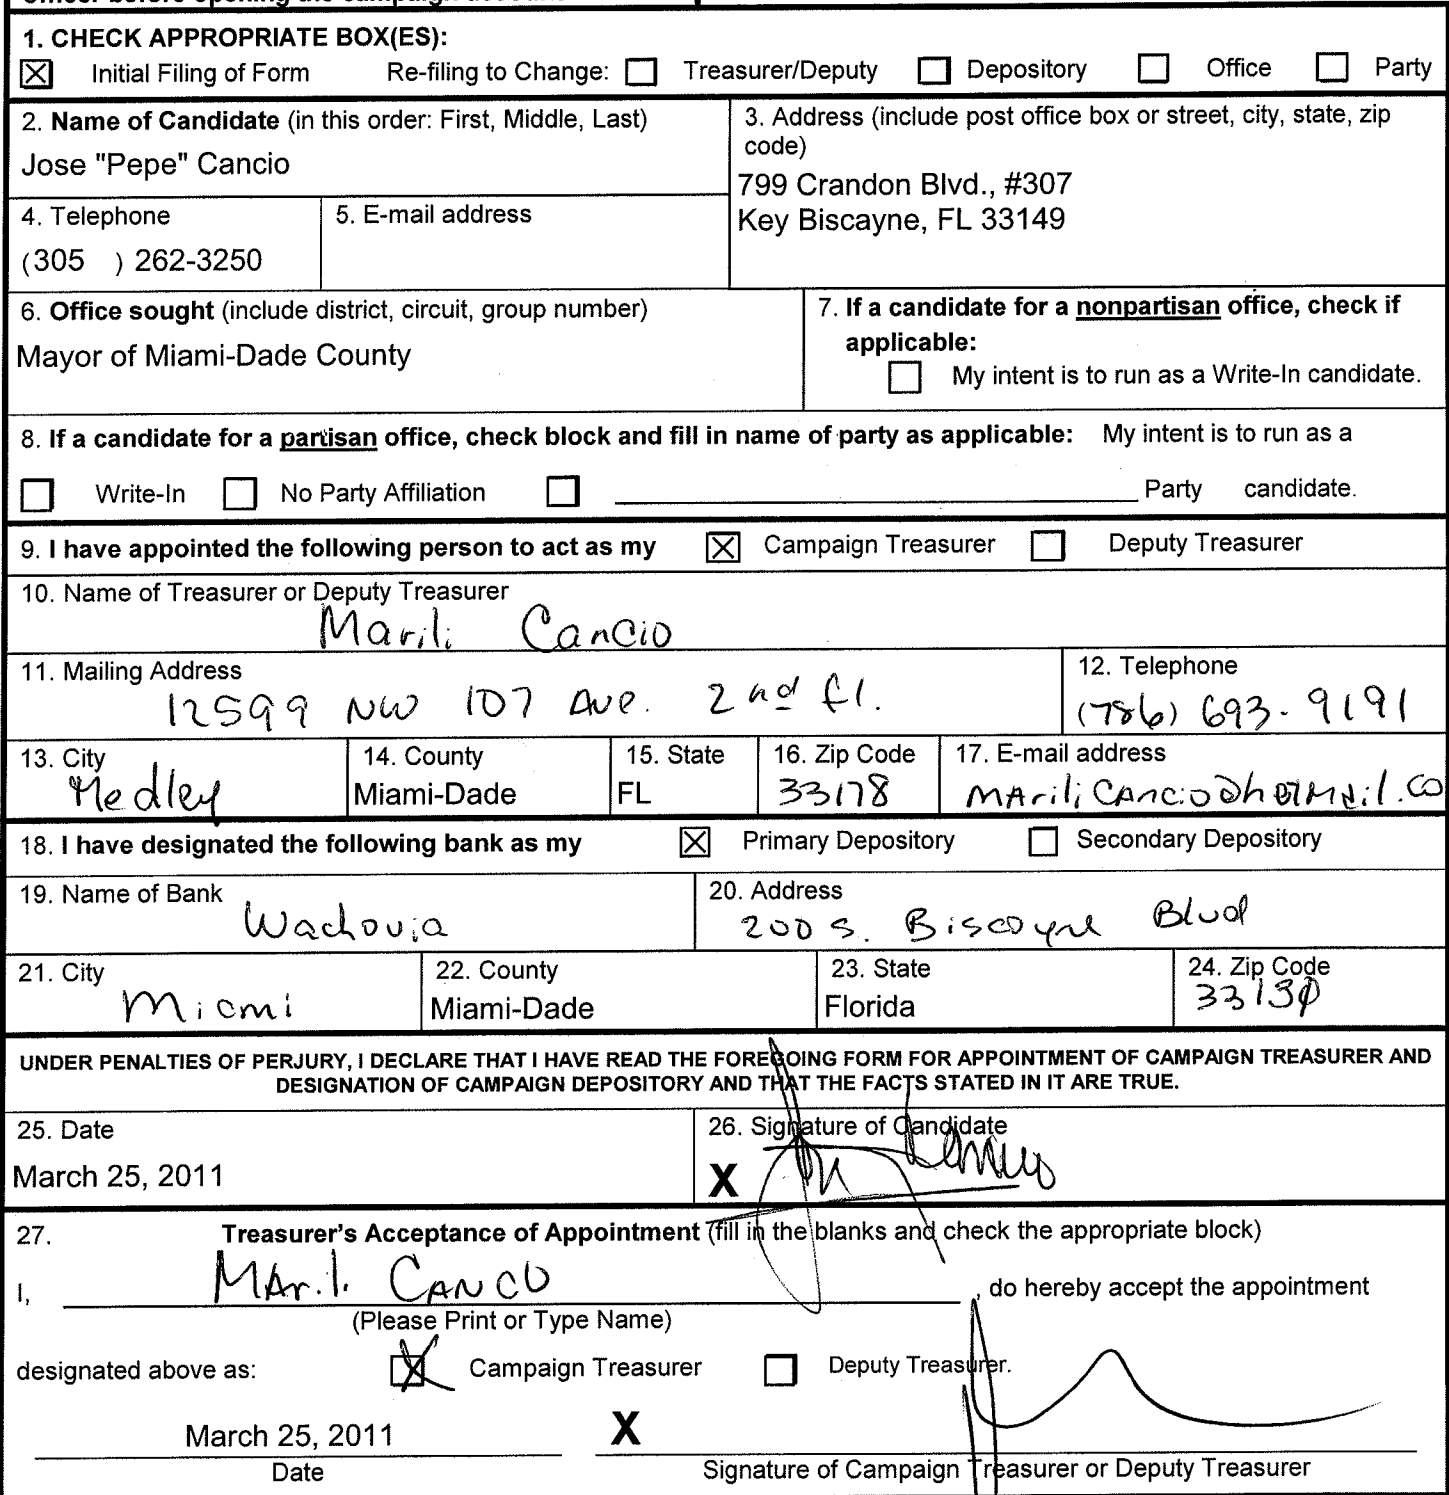 1. CHECK APPROPRIATE BOX(ES):
Initial Filing of Form Re-filing to Change: Treasurer/Deputy Depository Office Party
2. Name of Candidate (in this order: First, Middle, Last)
Jose "Pepe" Cancio
3. Address (include post office box or street, city, state, zip
code)
799 Crandon Blvd., #307
Key Biscayne, FL 33149
4. Telephone
(305 ) 262-3250
5. E-mail address
6. Office sought (include district, circuit, group number)
Mayor of Miami-Dade County
7. If a candidate for a nonpartisan office, check if
applicable:
My intent is to run as a Write-In candidate.
8. If a candidate for a partisan office, check block and fill in name of party as applicable: My intent is to run as a
Write-In No Party Affiliation Party candidate.
9. I have appointed the following person to act as my Campaign Treasurer Deputy Treasurer
10. Name of Treasurer or Deputy Treasurer
Marili Cancio
11. Mailing Address
12599 NW 107 Ave. 2nd fl.
12. Telephone
(786) 693-9191
13. City
Medley
14. County
Miami-Dade
15. State
FL
16. Zip Code
33178
17. E-mail address
MAriliCAncio@hotmail.co
18. I have designated the following bank as my Primary Depository Secondary Depository
19. Name of Bank
Wachovia
20. Address
200 S. Biscayne Blvd
21. City
Miami
22. County
Miami-Dade
23. State
Florida
24. Zip Code
33130
UNDER PENALTIES OF PERJURY, I DECLARE THAT I HAVE READ THE FOREGOING FORM FOR APPOINTMENT OF CAMPAIGN TREASURER AND
DESIGNATION OF CAMPAIGN DEPOSITORY AND THAT THE FACTS STATED IN IT ARE TRUE.
25. Date
March 25, 2011
26. Signature of Candidate
X
27. Treasurer's Acceptance of Appointment (fill in the blanks and check the appropriate block)
I, MArili CANCIO , do hereby accept the appointment
(Please Print or Type Name)
designated above as: Campaign Treasurer Deputy Treasurer.
March 25, 2011 X
Date Signature of Campaign Treasurer or Deputy Treasurer